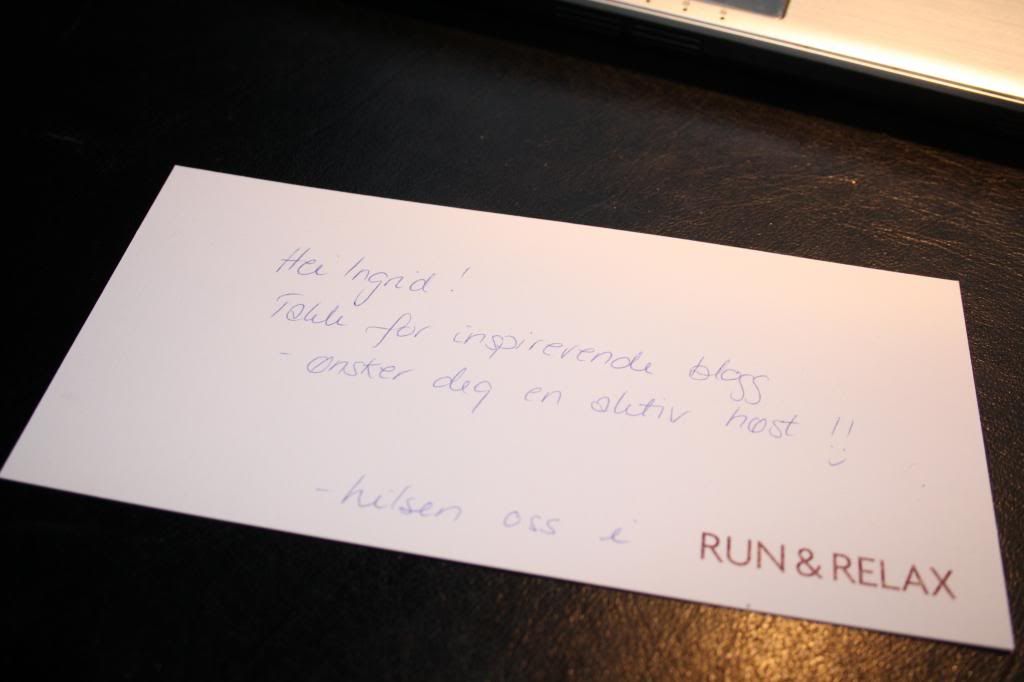 Hei Ingrid!
Takk for inspirerende blogg
- ønsker deg en aktiv høst!!
- hilsen oss i
RUN & RELAX